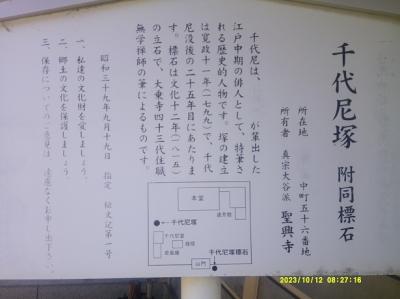 千代尼塚 附同標石
所在地 中町五十六番地
所有者 真宗大谷派 聖興寺
千代尼は、 が輩出した
江戸中期の俳人として、特筆さ
れる歴史的人物です。塚の建立
は寛政十一年(一七九九)で、千代
尼没後の二十五年目にあたりま
す。標石は文化十二年(一八一五)
の立石で、大乗寺四十三代住職
無学禅師の筆によるものです。
昭和三十九年九月十九日 指定 第一号
一、私達の文化財を愛しましょう。
二、郷土の文化を保護しましょう。
三、保存についてのご意見は 遠慮なくお申し出下さい。
本堂
千代尼塚
千代尼堂
千代尼塚標石
山門
2023/10/12 08:27:16